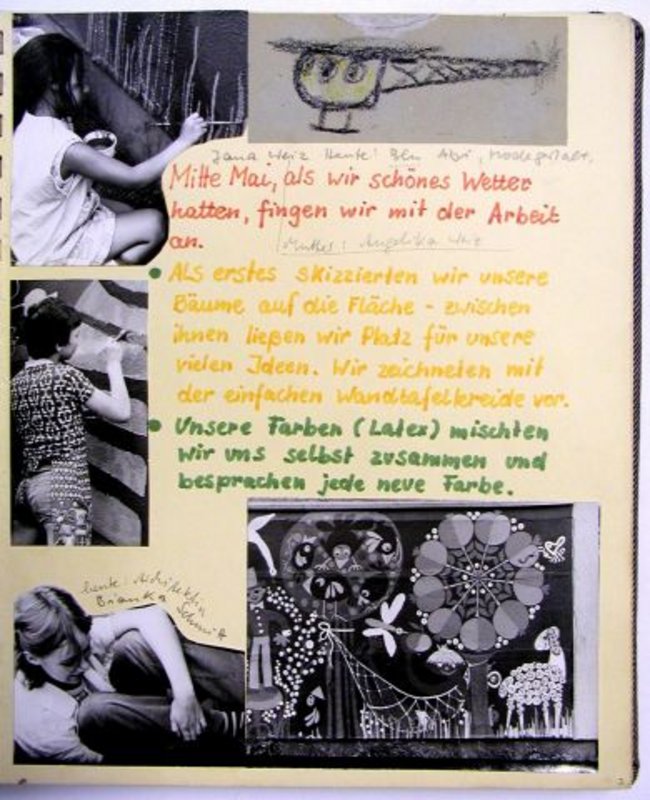 Jana Weiz Heute: Abi,
Mitte Mai, als wir schönes Wetter
hatten, fingen wir mit der Arbeit
an.
Mutter: Angelika Weiz
• Als erstes skizzierten wir unsere
Bäume auf die Fläche - zwischen
ihnen ließen wir Platz für unsere
vielen Ideen. Wir zeichneten mit
der einfachen Wandtafelkreide vor.
• Unsere Farben (Latex) mischten
wir uns selbst zusammen und
besprachen jede neue Farbe.
heute: Architektin
Bianka Schmidt